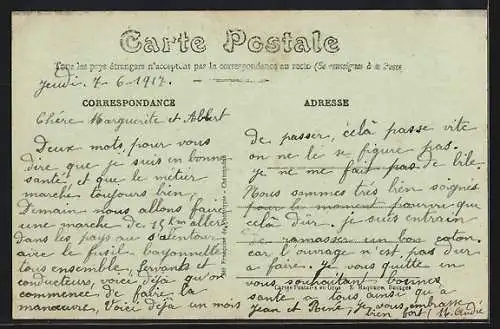 Carte Postale
Tous les pays étrangers n'acceptent pas la correspondance au recto (Se renseigner à la Poste
Jeudi 7-6-1917.
CORRESPONDANCE
Chère Marguerite et Albert
Deux mots, pour vous
dire que je suis en bonne
santé, et que le métier
marche toujours bien,
Demain nous allons faire
une marche de 15 km allers
dans les pays au s'atenton
avec le fusil bayonnette
tous ensemble, servants et
conducteurs, voiçe déja qu'on
commence de faire la
manœuvre, Voiçe déja un mois
ADRESSE
de passer, çèlà passe vite
on ne le se figure pas.
je ne me fait pas de bile.
Nous sommes très bien soignés
pour le moment pourvu que
çèla dür. je suis entrain
de ramasser un bon coton.
car l'ouvrage n'est pas dur
a faire. je vous quitte en
vous souhaitant bonnes
santé a tous ainsi qu'a
Jean et René, je vous embrasse
bien fort, André